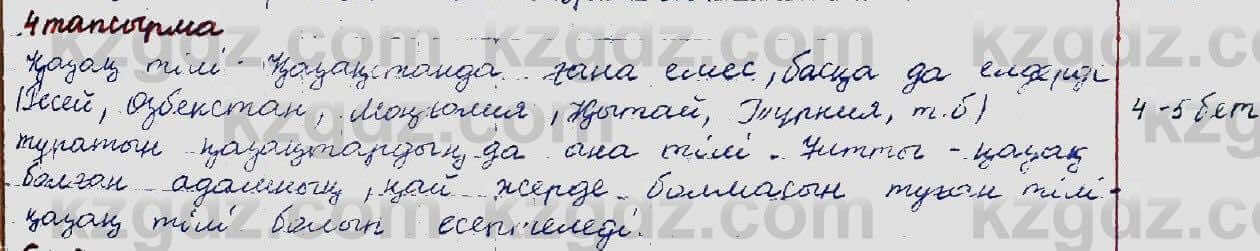 4 тапсырма
Қазақ тілі Қазақстанда ғана емес, басқа да елдерде
(Ресей, Өзбекстан, Моңғолия, Қытай, Түркия, т.б) 4-5 бет
тұратын қазақтардың да ана тілі. Ұлты - қазақ
болған адамның, қай жерде болмасын туған тілі -
қазақ тілі болып есептеледі.
kzgdz.com